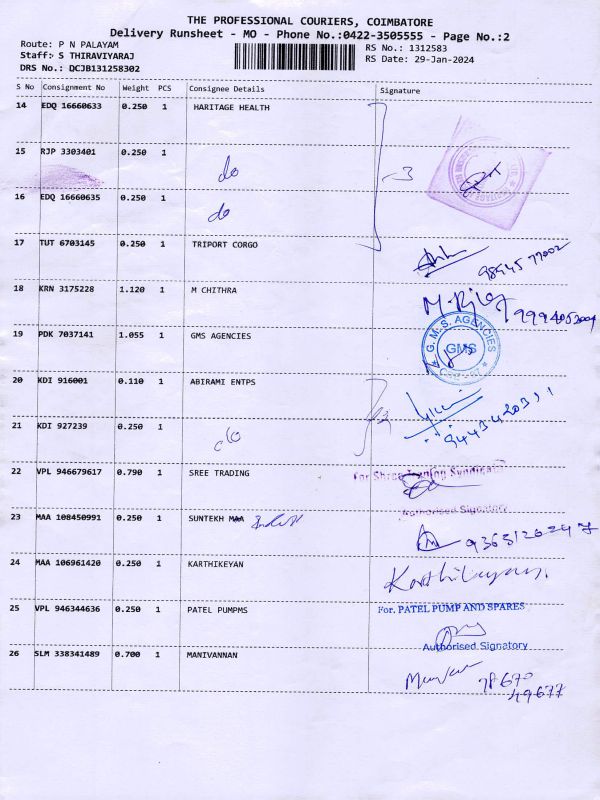 THE PROFESSIONAL COURIERS, COIMBATORE
Delivery Runsheet - MO - Phone No.:0422-3505555 - Page No.:2
Route: P N PALAYAM
RS No.: 1312583
Staff: S THIRAVIYARAJ
RS Date: 29-Jan-2024
DRS No.: DCJB131258302
S No Consignment No Weight PCS Consignee Details Signature
14 EDQ 16660633 0.250 1 HARITAGE HEALTH
15 RJP 3303401 0.250 1 do
3
16 EDQ 16660635 0.250 1 do
17 TUT 6703145 0.250 1 TRIPORT CORGO
98945 77002
18 KRN 3175228 1.120 1 M CHITHRA
19 PDK 7037141 1.055 1 GMS AGENCIES
G.M.S. AGENCIES
GMS
20 KDI 916001 0.110 1 ABIRAMI ENTPS
21 KDI 927239 0.250 1 do
22 VPL 946679617 0.790 1 SREE TRADING
For Shree Trading Syndicate
Authorised Signatory
23 MAA 108450991 0.250 1 SUNTEKH
24 MAA 106961420 0.250 1 KARTHIKEYAN
Karthikeyan.
25 VPL 946344636 0.250 1 PATEL PUMPMS
For. PATEL PUMP AND SPARES
Authorised Signatory
26 SLM 338341489 0.700 1 MANIVANNAN
78670
49677